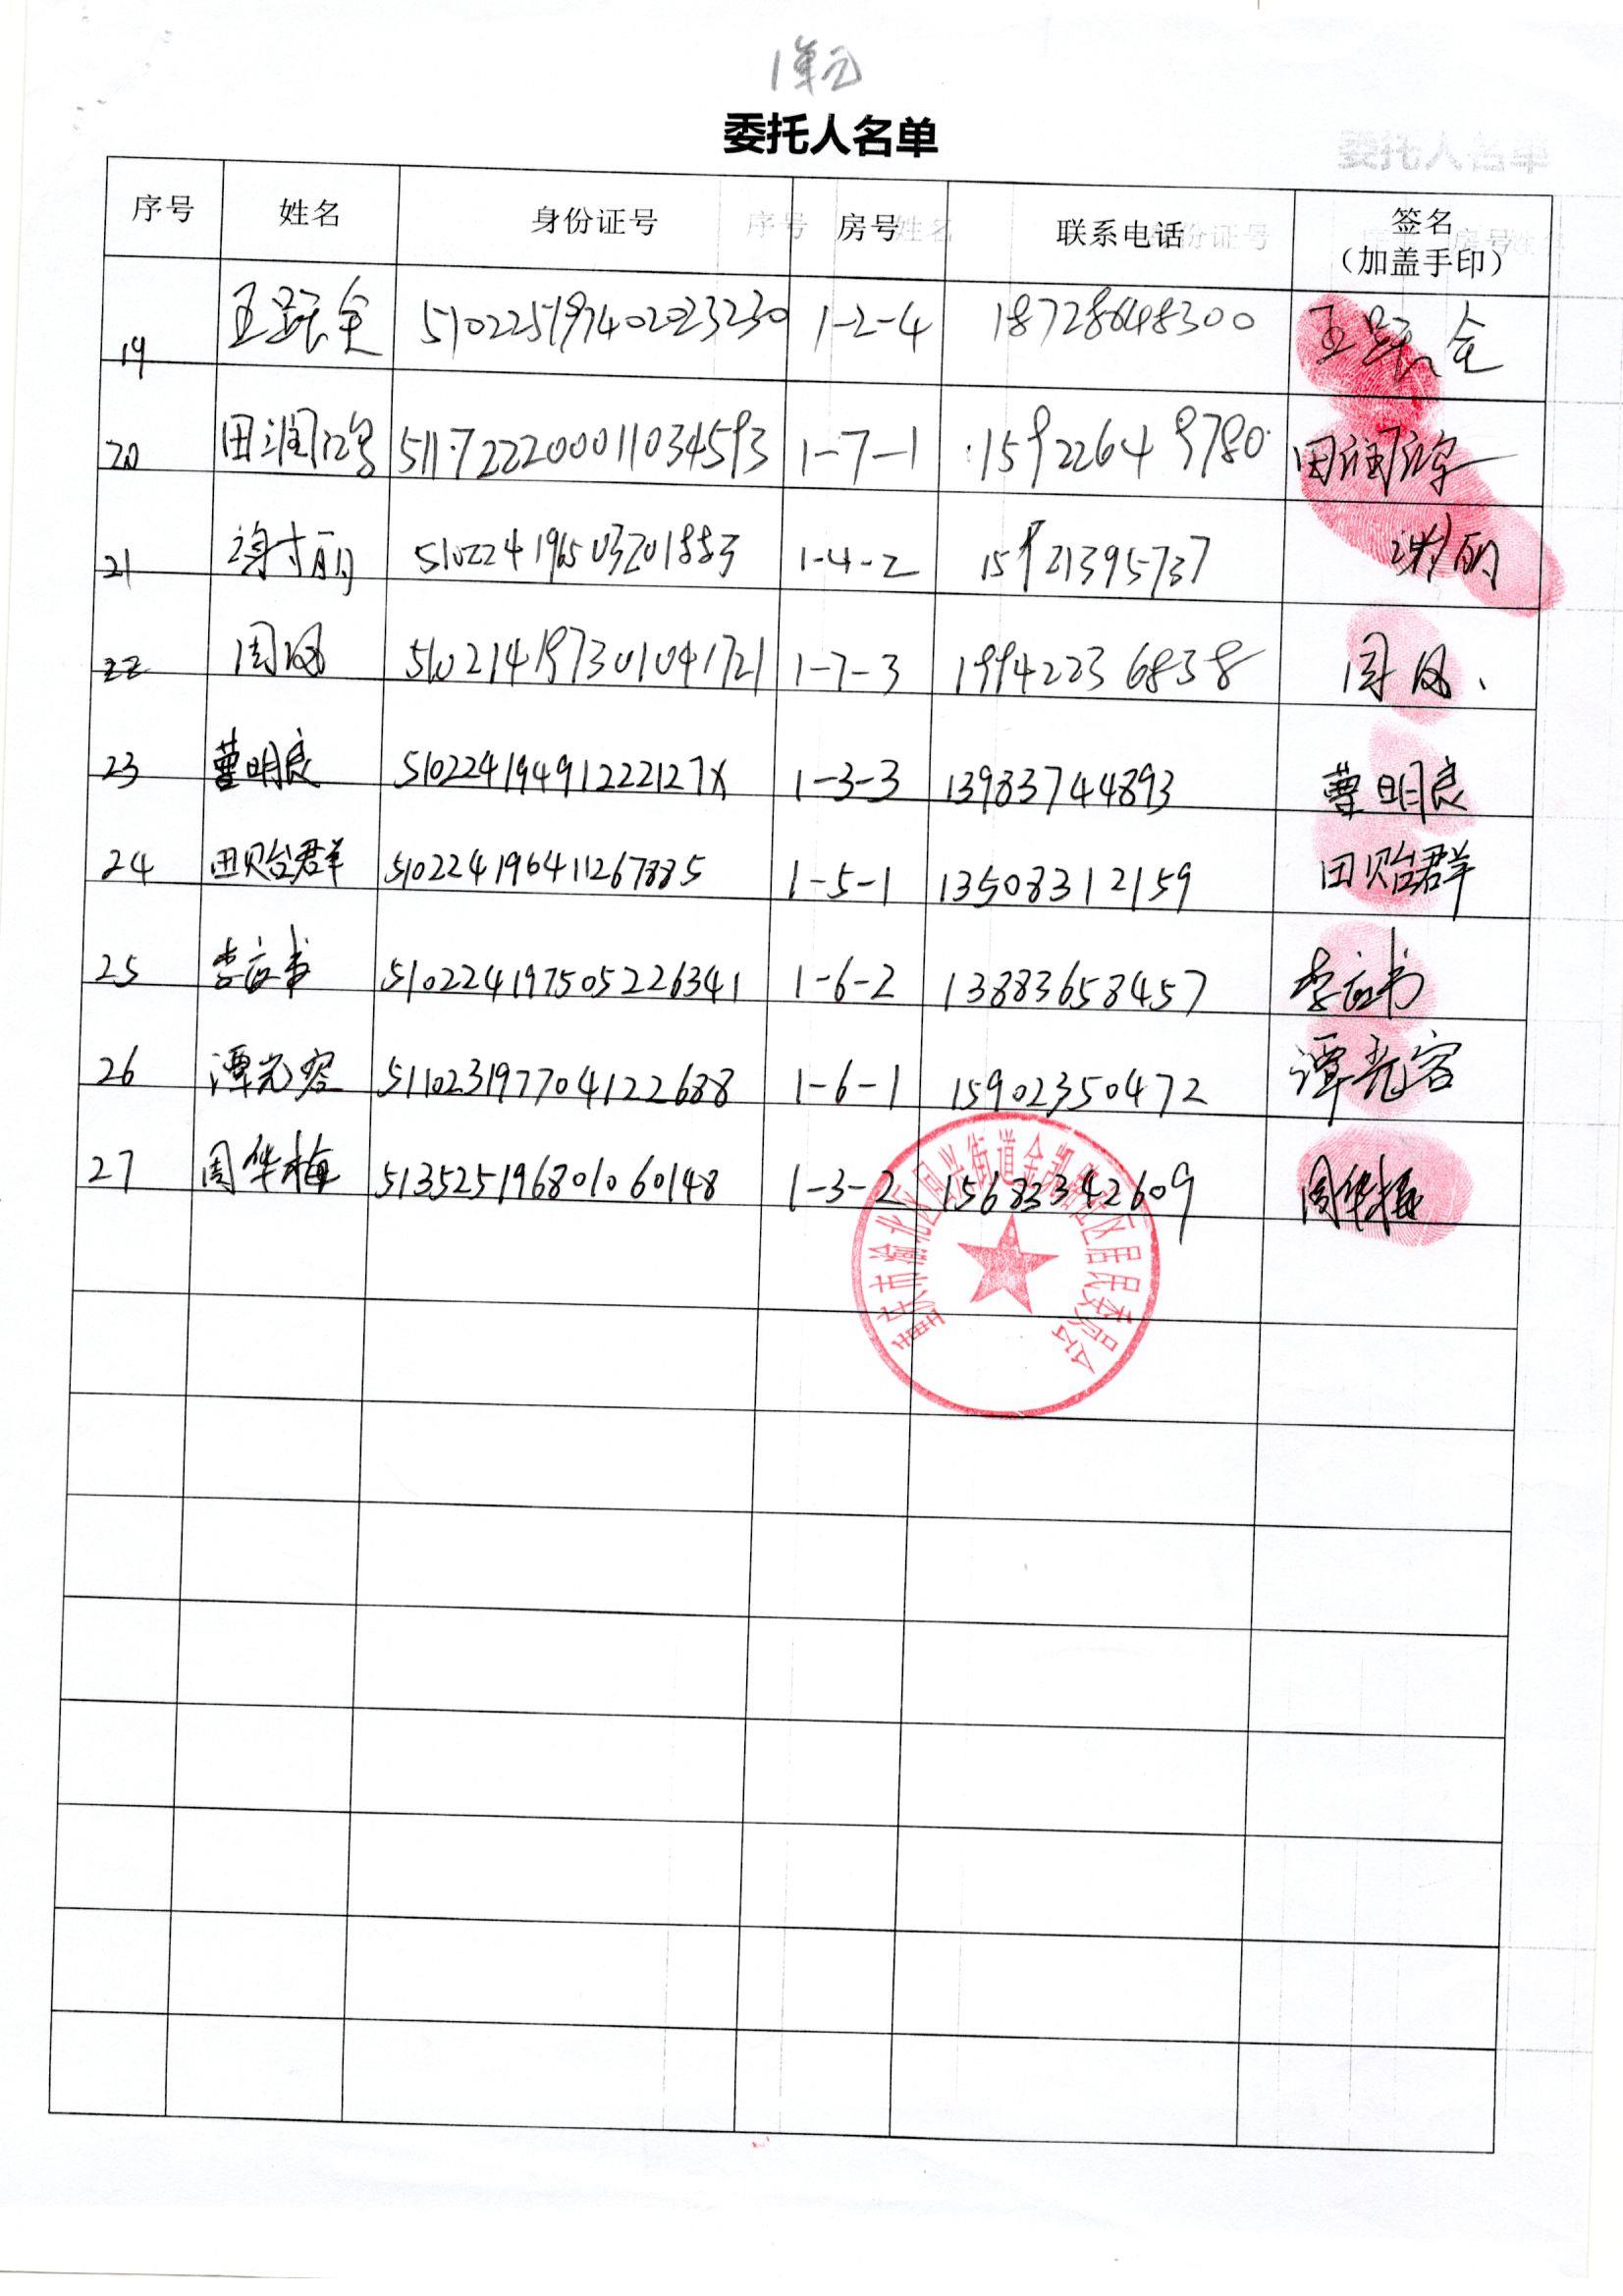 1单元
委托人名单
序号 姓名 身份证号 房号 联系电话 签名
（加盖手印）
19 王跃全 510225197402023230 1-2-4 18728648300 王跃全
20 田润 511722200011034593 1-7-1 15922649780 田润
21 丽 510224196503201883 1-4-2 15921395737 丽
22 周凤 510214197301041721 1-7-3 19942236838 周凤
23 曹明良 51022419491222127X 1-3-3 13983744893 曹明良
24 田贻群 510224196411267885 1-5-1 13508312159 田贻群
25 李应书 510224197505226341 1-6-2 13883658457 李应书
26 谭光容 511023197704122688 1-6-1 15902350472 谭光容
27 周华梅 513525196801060148 1-3-2 15683342609 周华梅
重庆市渝北区回兴街道金凯路社区居民委员会